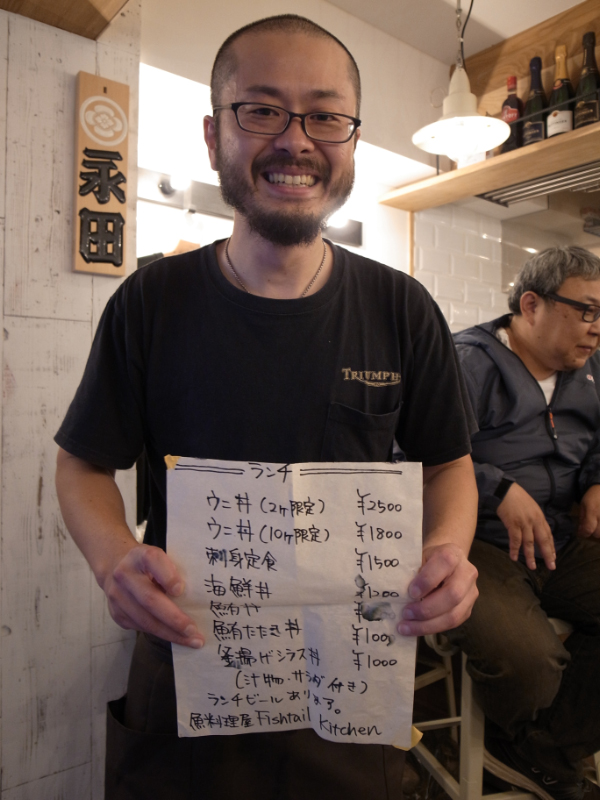 永田
TRIUMPH
ランチ
ウニ丼(2ヶ限定) ¥2500
ウニ丼(10ヶ限定) ¥1800
刺身定食 ¥1500
海鮮丼
鮪たたき丼
釜揚げシラス丼 ¥1000
(汁物・サラダ付き)
ランチビールあります。
魚料理屋 Fishtail Kitchen